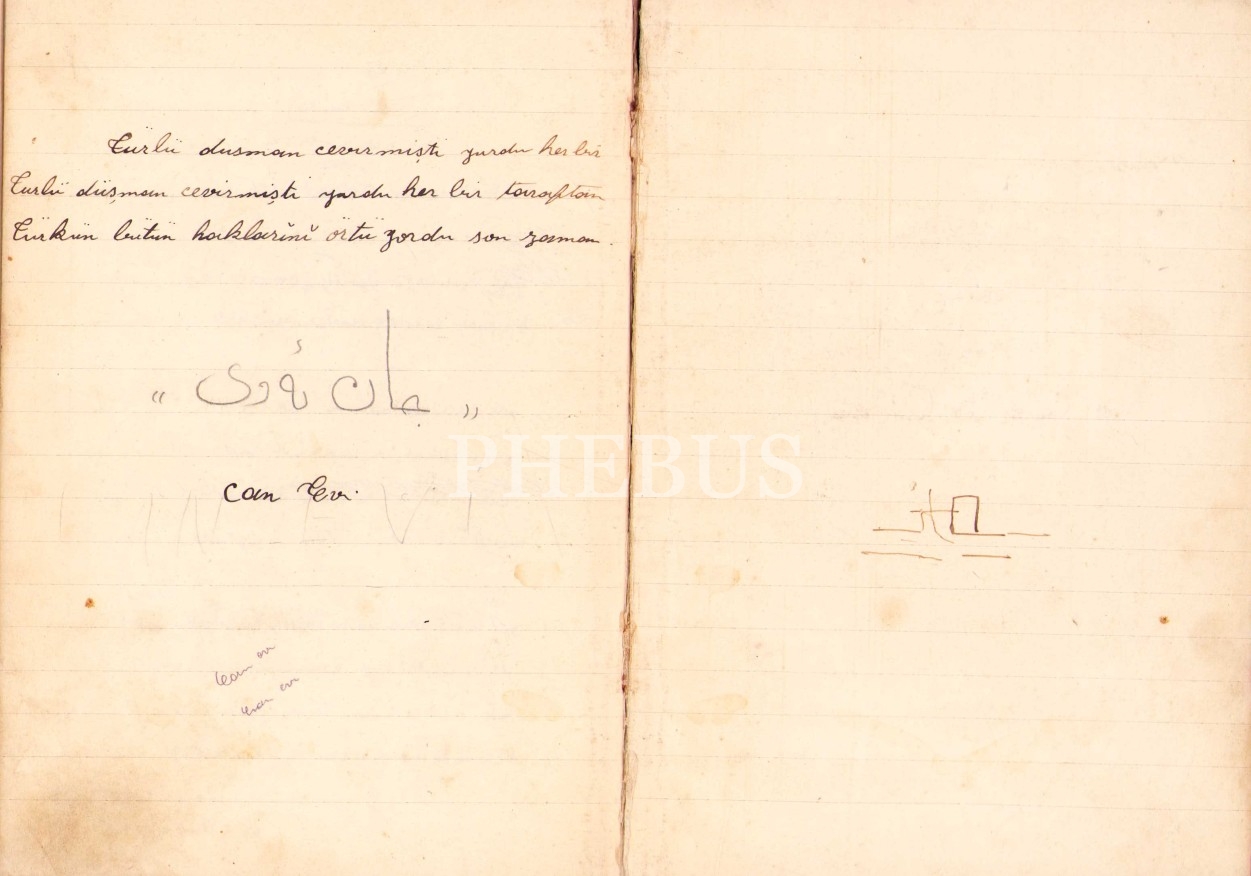 Türlü dusman cevirmişti yurdu her bir
Turlü düşman cevirmişti yurdu her bir taraftan
Türkün bütün haklarĭnĭ örtü yordu son zaman.
« جان ئەوى »
PHEBUS
Can Evi
Can evi
Can evi